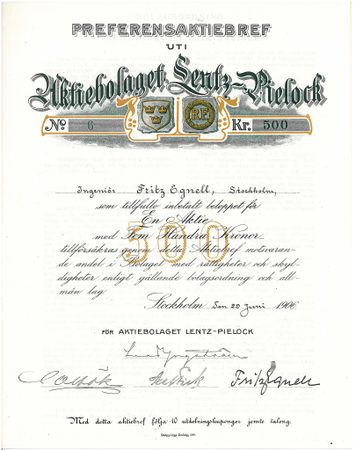 PREFERENSAKTIEBREF
UTI
Aktiebolaget Lentz-Pielock
No 6 Kr. 500
Ingeniör Fritz Egnell, Stockholm,
som tillfullo inbetalt beloppet för
En Aktie
500
med Fem Hundra Kronor
tillförsäkras genom detta Aktiebref motsvaran-
de andel i Bolaget med rättigheter och skyl-
digheter enligt gällande bolagsordning och all-
män lag.
Stockholm den 20 Juni 1906
FÖR AKTIEBOLAGET LENTZ-PIELOCK
Fritz Egnell
Med detta aktiebref följa 10 utdelningskuponger jemte talong.